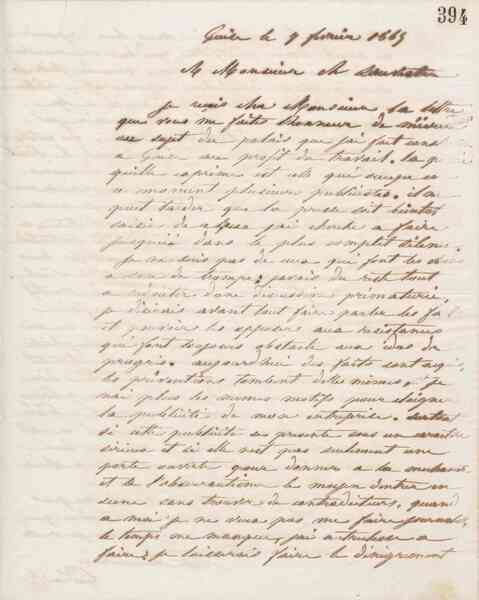 394
Guise le 9 février 1865
A Monsieur Ch Sauvestre
Je reçois cher Monsieur la lettre
que vous me faites l'honneur de m'écrire
au sujet du palais que j'ai fait
a Guise au profit du travail. la
quelle exprime est celle qui occupe en
ce moment plusieurs publicistes. il ne
peut tarder que la presse soit bientot
saisie de ce que j'ai cherché a faire
jusqu'ici dans le plus complet silence.
Je ne suis pas de ceux qui font les choses
a son de trompe; j'avais du reste tout
a éviter d'une discussion prematurée,
je désirais avant tout faire parler les faits
et pouvoir les opposer aux resistances
qui font toujours obstacle aux idées de
progrès. aujourd'hui des faits sont acquis,
les préventions tombent d'elles mêmes. je
n'ai plus les mêmes motifs pour éloigner
la publicité de mon entreprise. surtout
si cette publicité se presente sous un caractère
sérieux et si elle n'est pas seulement une
porte ouverte pour donner a la méchanceté
et de l'obscurantisme le moyen d'entrer en
scene sans trouver de contradicteurs. quand
a moi je ne veux pas me faire journaliste,
le temps me manque, j'ai autre chose a
faire; je laisserais faire le dénigrement